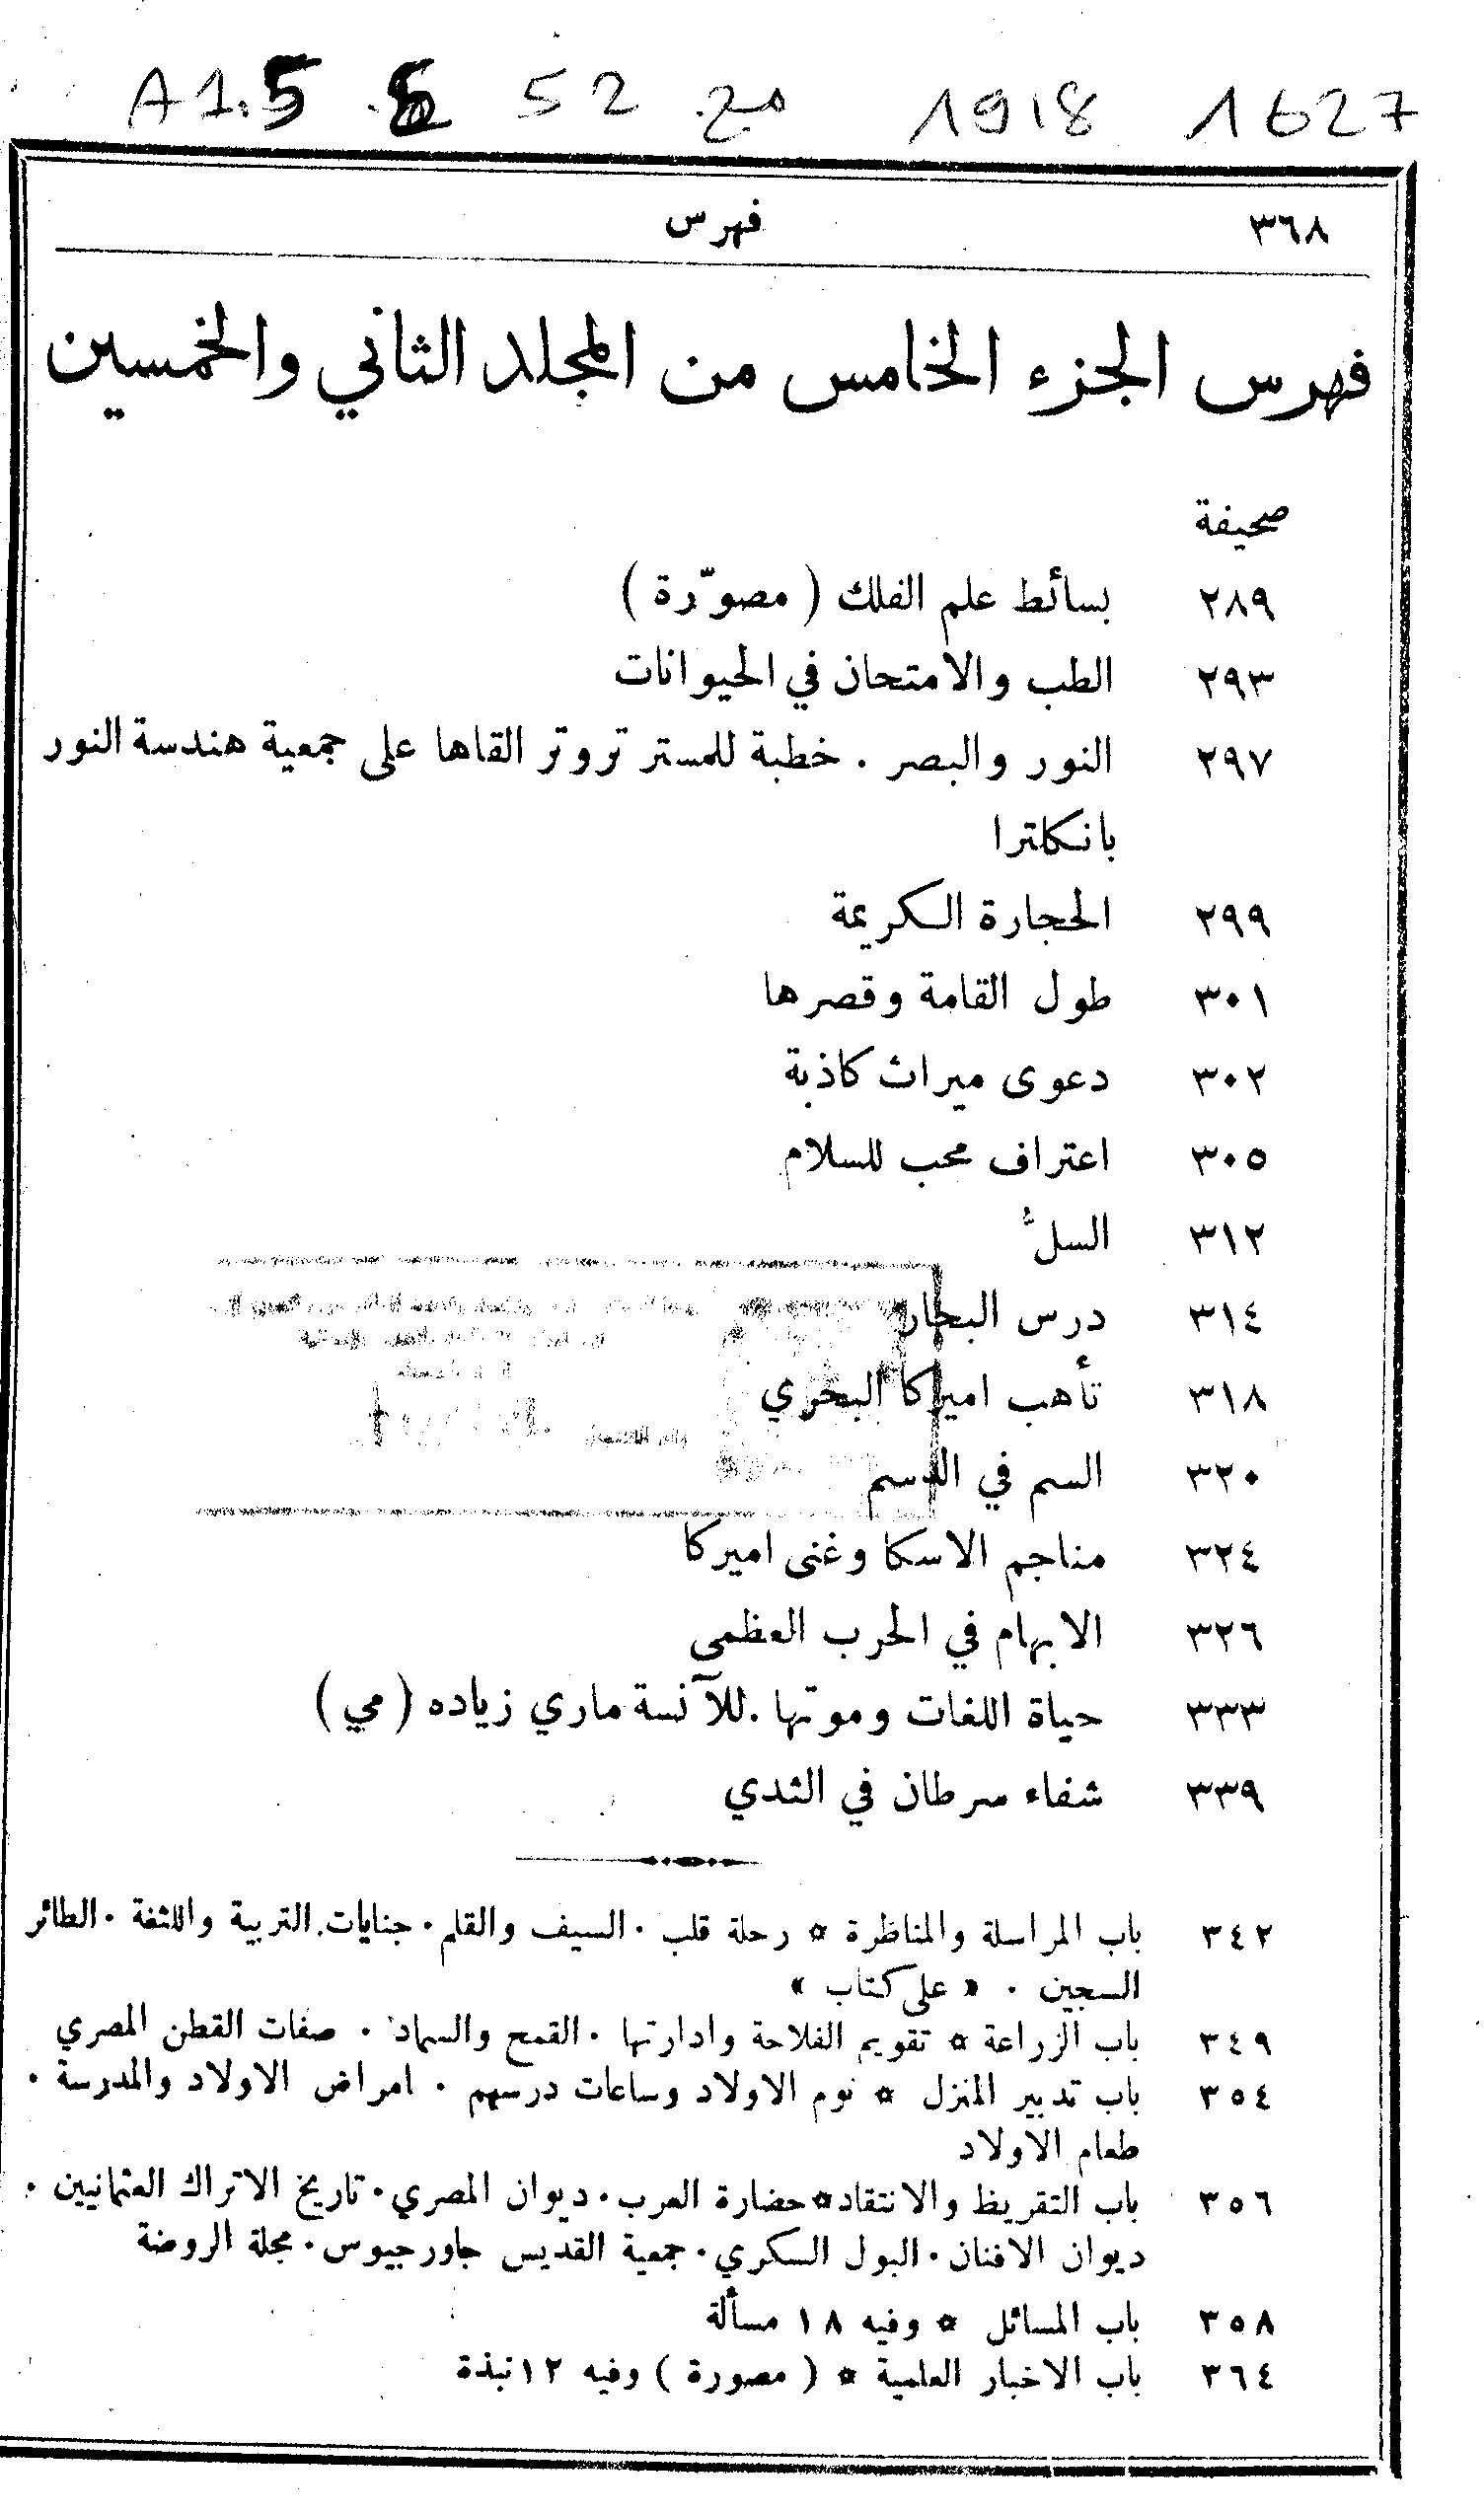 A1.5 .5 52 مج. 1918 1627
٣٦٨ فهرس
فهرس الجزء الخامس من المجلد الثاني والخمسين
صحيفة
٢٨٩ بسائط علم الفلك ( مصوّرة )
٢٩٣ الطب والامتحان في الحيوانات
٢٩٧ النور والبصر . خطبة للمستر تروتر القاها على جمعية هندسة النور
بانكلترا
٢٩٩ الحجارة الكريمة
٣٠١ طول القامة وقصرها
٣٠٢ دعوى ميراث كاذبة
٣٠٥ اعتراف محب للسلام
٣١٢ السلُّ
٣١٤ درس البحار
٣١٨ تأهب اميركا البحري
٣٢٠ السم في الدسم
٣٢٤ مناجم الاسكا وغنى اميركا
٣٢٦ الابهام في الحرب العظمى
٣٣٣ حياة اللغات وموتها . للآنسة ماري زياده ( مي )
٣٣٩ شفاء سرطان في الثدي
٣٤٢ باب المراسلة والمناظرة * رحلة قلب . السيف والقلم . جنايات التربية واللثغة . الطائر
السجين . « على كتاب »
٣٤٩ باب الزراعة * تقويم الفلاحة وادارتها . القمح والسماد . صفات القطن المصري
٣٥٤ باب تدبير المنزل * نوم الاولاد وساعات درسهم . امراض الاولاد والمدرسة .
طعام الاولاد
٣٥٦ باب التقريظ والانتقاد * حضارة العرب . ديوان المصري . تاريخ الاتراك العثمانيين .
ديوان الافنان . البول السكري . جمعية القديس جاورجيوس . مجلة الروضة
٣٥٨ باب المسائل * وفيه ١٨ مسألة
٣٦٤ باب الاخبار العلمية * ( مصورة ) وفيه ١٢ نبذة